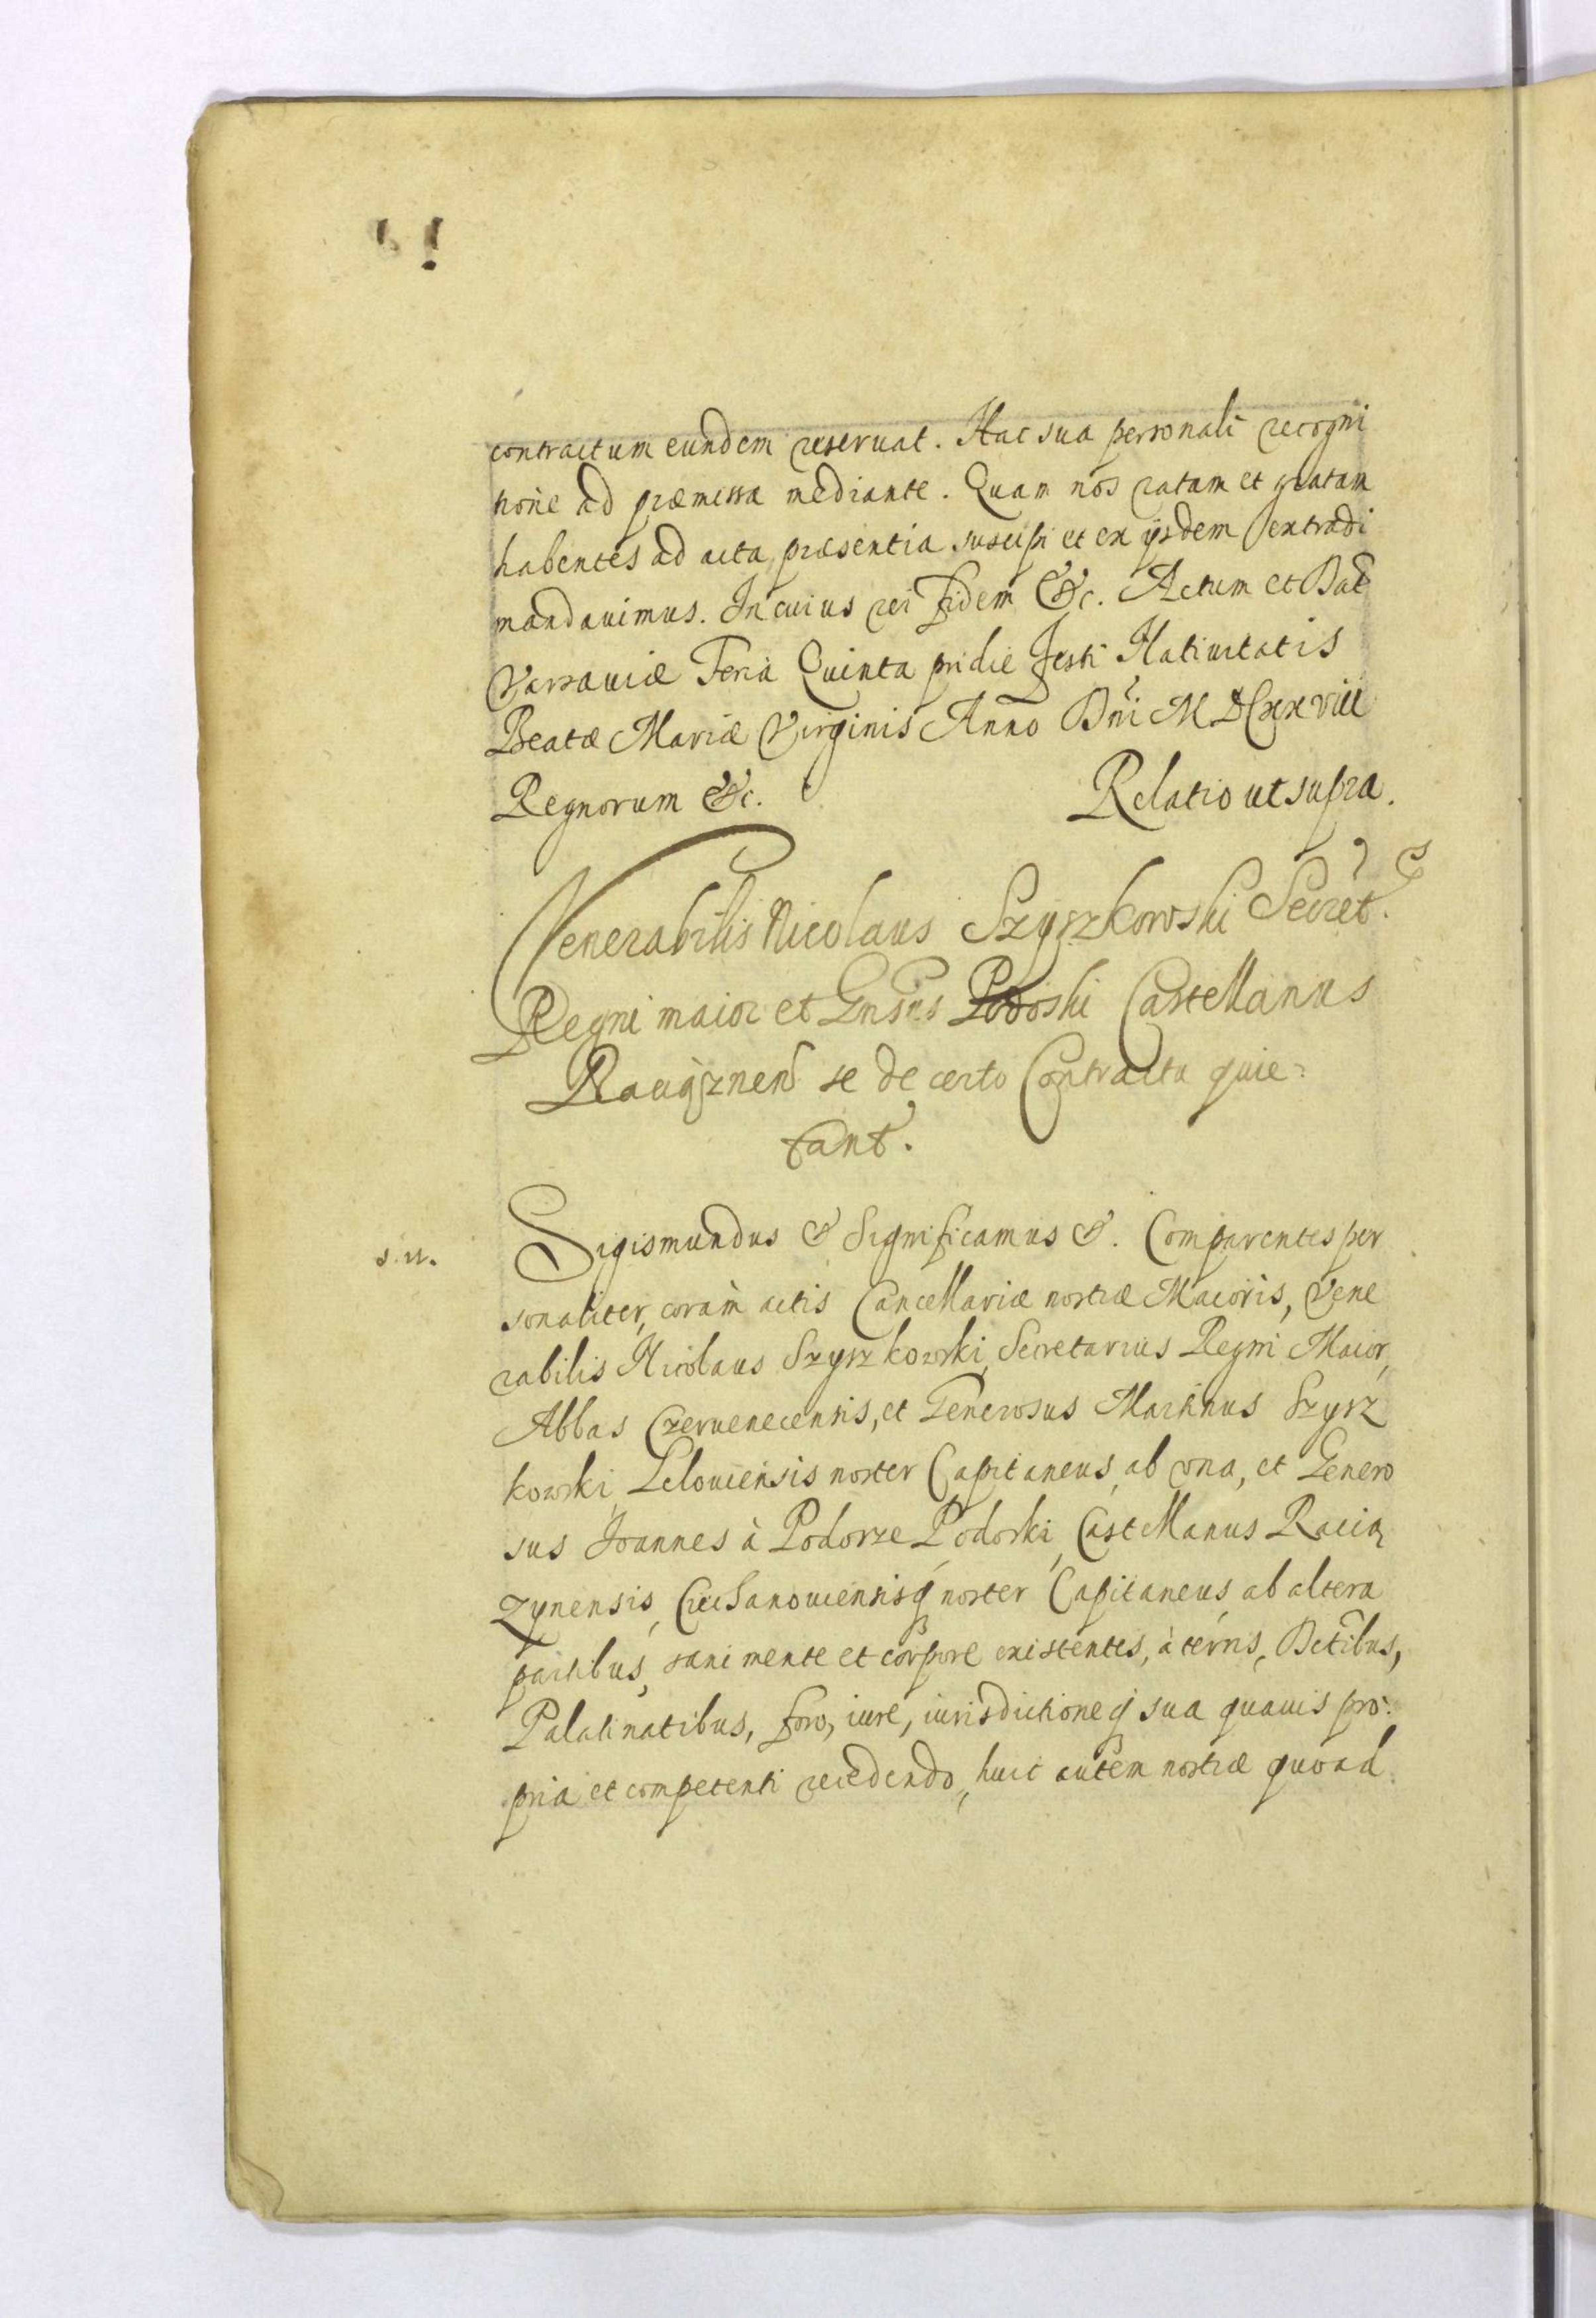 contractum eundem reseruat. Hac sua personali recogni
tione ad præmissa mediante. Quam nos ratam et gratam
habentes ad acta præsentia suscipi et ex ijsdem extradi
mandauimus. In cuius rei fidem &c. Actum et Dat
Varsauiæ Feria Quinta pridie Festi Natiuitatis
Beatæ Mariæ Virginis Anno Dni M DC xx viii
Regnorum &c. Relatio ut supra.
Venerabilis Nicolaus Szyszkowski Secret.
Regni maior et Gnsus Podoski Castellanus
Raciąznen se de certo Contractu quie:
tant.
s. n. Sigismundus & Significamus &. Comparentes per
sonaliter, coram actis Cancellariæ nostræ Maioris, Vene
rabilis Nicolaus Szyszkowski, Secretarius Regni Maior,
Abbas Czeruenecensis, et Generosus Martinus Szysz
kowski, Leloviensis noster Capitaneus, ab vna, et Genero
sus Joannes à Podosze Podoski, Castellanus Racią
zynensis, noster Capitaneus ab altera
partibus, sani mente et corpore existentes, à terris, Dctibus,
Palatinatibus, foro, iure, iurisdictioneq sua quauis pro:
pria et competenti recedendo, huic autem nostræ quoad